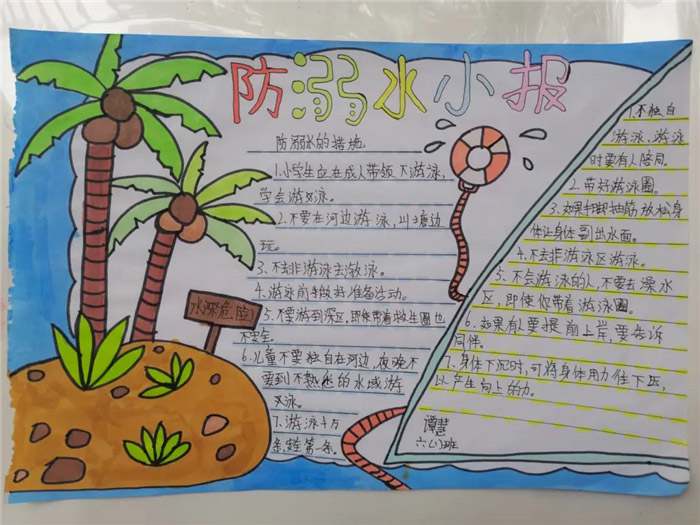 防溺水小报
防溺水的措施
1.小学生应在成人带领下游泳,
学会游泳。
2.不要在河边游泳,山塘边
玩。
3.不去非游泳去游泳。
4.游泳前要做好准备活动。
5.不要游到深区,即使带着救生圈也
不安全。
6.儿童不要独自在河边,夜晚不
要到不熟悉的水域游
泳。
7.游泳千万
条,安全第一条。
水深危险
1.不独自
游泳,游泳
时要有人陪同。
2.带好游泳圈。
3.如果手脚抽筋放松身
体让身体副出水面。
4.不去非游泳区游泳。
5.不会游泳的人,不要去深水
区,即使你带着游泳圈。
6.如果有人要提前上岸,要告诉
同伴。
7.身体下沉时,可将身体用力往下压,
以产生向上的力。
谭慧
六(1)班